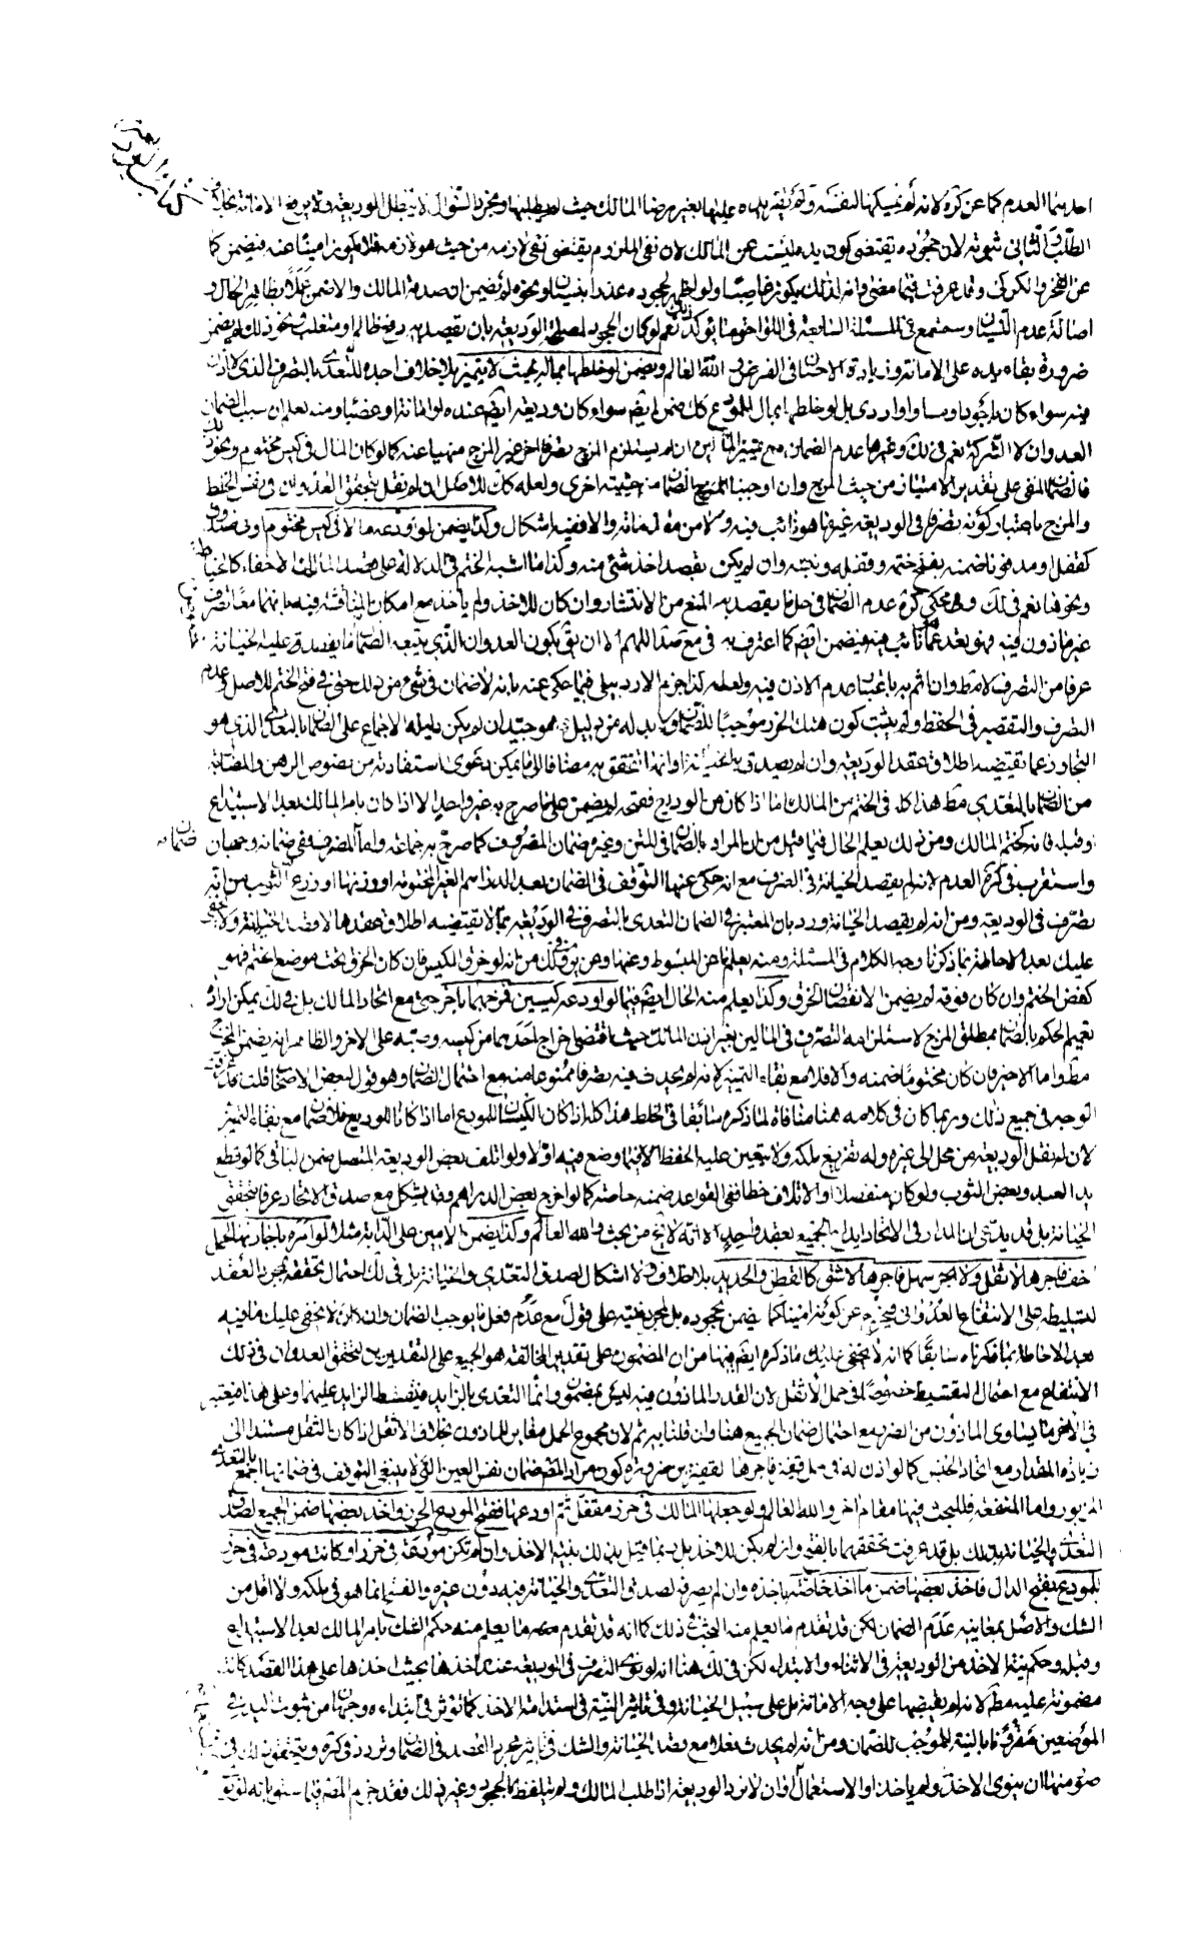 كتاب الوديعة
احدهما العدم كما عن كره لانه لم يمسكها لنفسه ولم يقر يده عليها بغير رضا المالك حيث لم يطلبها ومجرد السؤال لا يبطل الوديعة ولا يرفع الامانة بخلاف
الطلب والثانى ثبوته لان جحوده يقتضى كون يده ليست عن المالك لان نفى الملزوم يقتضى نفى لازمه من حيث هو لازمه فلا يكون امينا عنه فيضمن كما
عن الفخر والكركى وقد عرفت فيما مضى وانه لذلك يكون غاصبا ولو اظهر لجحوده عذرا بنسيان ونحوه لم يضمن ان صدقه المالك والا ضمن عملا بظاهر الحال و
اصالة عدم النسيان وستسمع فى المسئلة السابعة فى اللواحق ما يؤكد ذلك نعم لو كان الجحود لمصلحة الوديعة بان يقصد به دفع ظالم او متغلب ونحو ذلك لم يضمن
ضرورة بقاء يده على الامانة وزيادة الاحسان فى الفرض والله العالم ويضمن لو خلطها بماله بحيث لا يتميز بلا خلاف اجده للتعدى بالتصرف الذى لا اذن
فيه سواء كان باجود او مساو او اردى بل لو خلطها بمال للمودع كان ضمن ايضم سواء كان وديعة ايضم عنده او امانة او غصبا ومنه يعلم ان سبب الضمان
العدوان لا الشركة نعم فى لك وغيرها عدم الضمان مع تميز المالين ان لم يستلزم المزج تصرفا اخر غير المزج منهيا عنه كما لو كان المال فى كيس مختوم ونحو ذلك
فالضمان المنفى على تقدير الامتياز من حيث المزج وان اوجبنا الضمان من حيثية اخرى ولعله كان للاصل ان لم نقل بتحقق العدوان فى نفس الخلط
والمزج باعتبار كونه تصرفا فى الوديعة غير ما هو نائب فيه ولا من مقدماته والا ففيه اشكال وكذا يضمن لو اودعه مالا فى كيس مختوم او فى صندوق
كقفل او مدفونا ضمنه بفتح ختمه وقفله ونبشه وان لم يكن بقصد اخذ شئ منه وكذا ما اشبه الختم فى الدلالة على قصد المالك الاخفاء كالخياطة
ونحوها نعم فى لك ومحكى كره عدم الضمان فى حل ما يقصد به المنع من الانتشار وان كان للاخذ ولم ياخذ مع امكان المناقشة فيه بانهما معا تصرف
غير ماذون فيه وهو بعد عما نائب فيه فيضمن ايضم كما اعترف به فى مع صد اللهم الا ان يق بكون العدوان الذى يتبعه الضمان ما يصدق عليه الخيانة
عرفا من التصرف لا مط وان اثم به باعتبار عدم الاذن فيه ولعله لذا جزم الاردبيلى فيما حكى عنه بانه لا ضمان فى شئ من ذلك حتى فى فتح الختم للاصل وعدم
التصرف والتقصير فى الحفظ ولم يثبت كون هتك الحرز موجبا للضمان ولا بد له من دليل وهو جيد ان لم يكن دليله الاجماع على الضمان بالتعدى الذى هو
التجاوز عما يقتضيه اطلاق عقد الوديعة وان لم يصدق به الخيانة او انها تتحقق به مضافا الى ما يمكن دعوى استفادته من نصوص الرهن والمضاربة
من الضمان بالتعدى مط هذا كله فى الختم من المالك اما اذا كان من الودعى ففتحه لم يضمن على ما صرح به غير واحد الا اذا كان بامر المالك بعد الاستيداع
او قبله فانه كختم المالك ومن ذلك يعلم الحال فيما قيل من ان المراد بالضمان فى المتن وغيره ضمان المظروف كما صرح به جماعة واما الظرف ففى ضمانه وجهان
واستقرب فى كره العدم لانه لم يقصد الخيانة فى الظرف مع انه حكى عنها التوقف فى الضمان بعد الدراهم الغير المختومة او وزنها او زرع الثوب من انه
تصرف فى الوديعة ومن انه لم يقصد الخيانة ورد بان المعتبر فى الضمان التعدى بالتصرف فى الوديعة مما لا يقتضيه اطلاق عقدها لا قصد الخيانة ولا يخفى
عليك بعد الاحاطة بما ذكرنا وجه الكلام فى المسئلة ومنه يعلم ما عن المبسوط وعنها وعن موضع من لك من انه لو خرق الكيس فان كان الخرق تحت موضع الختم فهو
كفض الختم وان كان فوقه لم يضمن الا نقصان الخرق وكذا يعلم منه الحال ايضم فيما لو اودعه كيسين فمزجهما باخر حتى مع اتحاد المالك بل فى لك يمكن ارادة
تعميم الحكم بالضمان بمطلق المزج لاستلزامه التصرف فى المالين بغير اذن المالك حيث اقتضى اخراج احدهما من كيسه وصبه على الاخر والظاهر انه يضمن المخرج
مط واما الاخر فان كان مختوما ضمنه والا فلا مع بقاء التميز لانه لم يحدث فيه تصرفا ممنوعا منه مع احتمال الضمان وهو قول لبعض الاصحاب قلت قد عرفت
الوجه فى جميع ذلك وربما كان فى كلامه هنا منافاة لما ذكره سابقا فى الخلط هذا كله اذا كان الكيسان للمودع اما اذا كانا للودعى فلا ضمان مع بقاء التميز
لان له نقل الوديعة من محل الى غيره وله تفريغ ملكه ولا يتعين عليه الحفظ الا فيما وضع فيه اولا ولو اتلف بعض الوديعة المتصل ضمن الباقى كما لو قطع
يد العبد وبعض الثوب ولو كان منفصلا او الاتلاف خطا ففى القواعد ضمنه خاصة كما لو اخرج بعض الدراهم وقد يشكل مع صدق الاتحاد عرفا بتحقق
الخيانة بل قد يدعى ان المدار فى الاتحاد ايداع الجميع بعقد واحد الا انه لا يخ من بحث والله العالم وكذا يضمن الامين على الدابة مثلا لو امره باجارتها لحمل
اخف فاجرها لاثقل ولا حمل سهل فاجرها لاشق كالقطن والحديد بلا خلاف ولا اشكال لصدق التعدى والخيانة بل فى لك احتمال تحققه بمجرد العقد
لتسليطه على الانتفاع العدوانى فيخرج عن كونه امينا كما يضمن بجحوده بل بمجرد نيته على قول مع عدم فعل ما يوجب الضمان وان كان لا يخفى عليك ما فيه
بعد الاحاطة بما ذكرناه سابقا كما انه لا يخفى عليك ما ذكره ايضم فيها من ان المضمون على تقدير المخالفة هو الجميع على التقديرين لتحقق العدوان فى ذلك
الانتفاع مع احتمال التقسيط خصوصا فى حمل الاثقل لان القدر الماذون فيه ليس بمضمون وانما التعدى بالزايد فيقسط الزايد عليهما وعلى هذا فيعتبر
فى الاخر ما يساوى الماذون من الضرر مع احتمال ضمان الجميع هنا وان قلنا به ثم لان مجموع الحمل مغاير للماذون بخلاف الاثقل اذا كان الثقل مستندا الى
زيادة المقدار مع اتحاد الجنس كما لو اذن له فى حمل قفيز فاجرها لقفيزين ضرورة كون مراد المصنف ضمان نفس العين التى لا ينبغى التوقف فى ضمانها اجمع بالتعدى
المزبور واما المنفعة فللبحث فيها مقام اخر والله العالم ولو جعلها المالك فى حرز مقفل ثم اودعها ففتح المودع الحرز واخذ بعضها ضمن الجميع لصدق
التعدى والخيانة بذلك بل قد عرفت تحققهما بالفتح وان لم يكن للاخذ بل ربما قيل بذلك بنية الاخذ وان لم تكن مودعة فى حرز او كانت مودعة فى حرز
للمودع بفتح الدال فاخذ بعضها ضمن ما اخذ خاصة باخذه وان لم يصرفه لصدق التعدى والخيانة فيه دون غيره والفتح انما هو فى ملكه ولا اقل من
الشك والاصل بمعانيه عدم الضمان لكن قد تقدم ما يعلم منه البحث فى ذلك كما انه قد تقدم معه ما يعلم منه حكم القفل بامر المالك بعد الاستيداع
وقبله وحكم نية الاخذ من الوديعة فى الاثناء والابتداء لكن فى لك هنا انه لو نوى التصرف فى الوديعة عند اخذها بحيث اخذها على هذا القصد كانت
مضمونة عليه مط لانه لم يقبضها على وجه الامانة بل على سبيل الخيانة وفى تاثير النية فى استدامة الاخذ كما تؤثر فى ابتداءه وجهان من ثبوت اليد فى
الموضعين مقرونا بالنية الموجب للضمان ومن انه لم يحدث فعلا مع قصد الخيانة والشك فى تاثير مجرد القصد فى الضمان وتردد فى كره ويتحقق ذلك فى
صور منها ان ينوى الاخذ ولم ياخذ او الاستعمال او ان لا يرد الوديعة اذا طلب المالك ولم يتلفظ بالجحود وغير ذلك فقد جزم المصنف فيما سبق بانه لو نوى